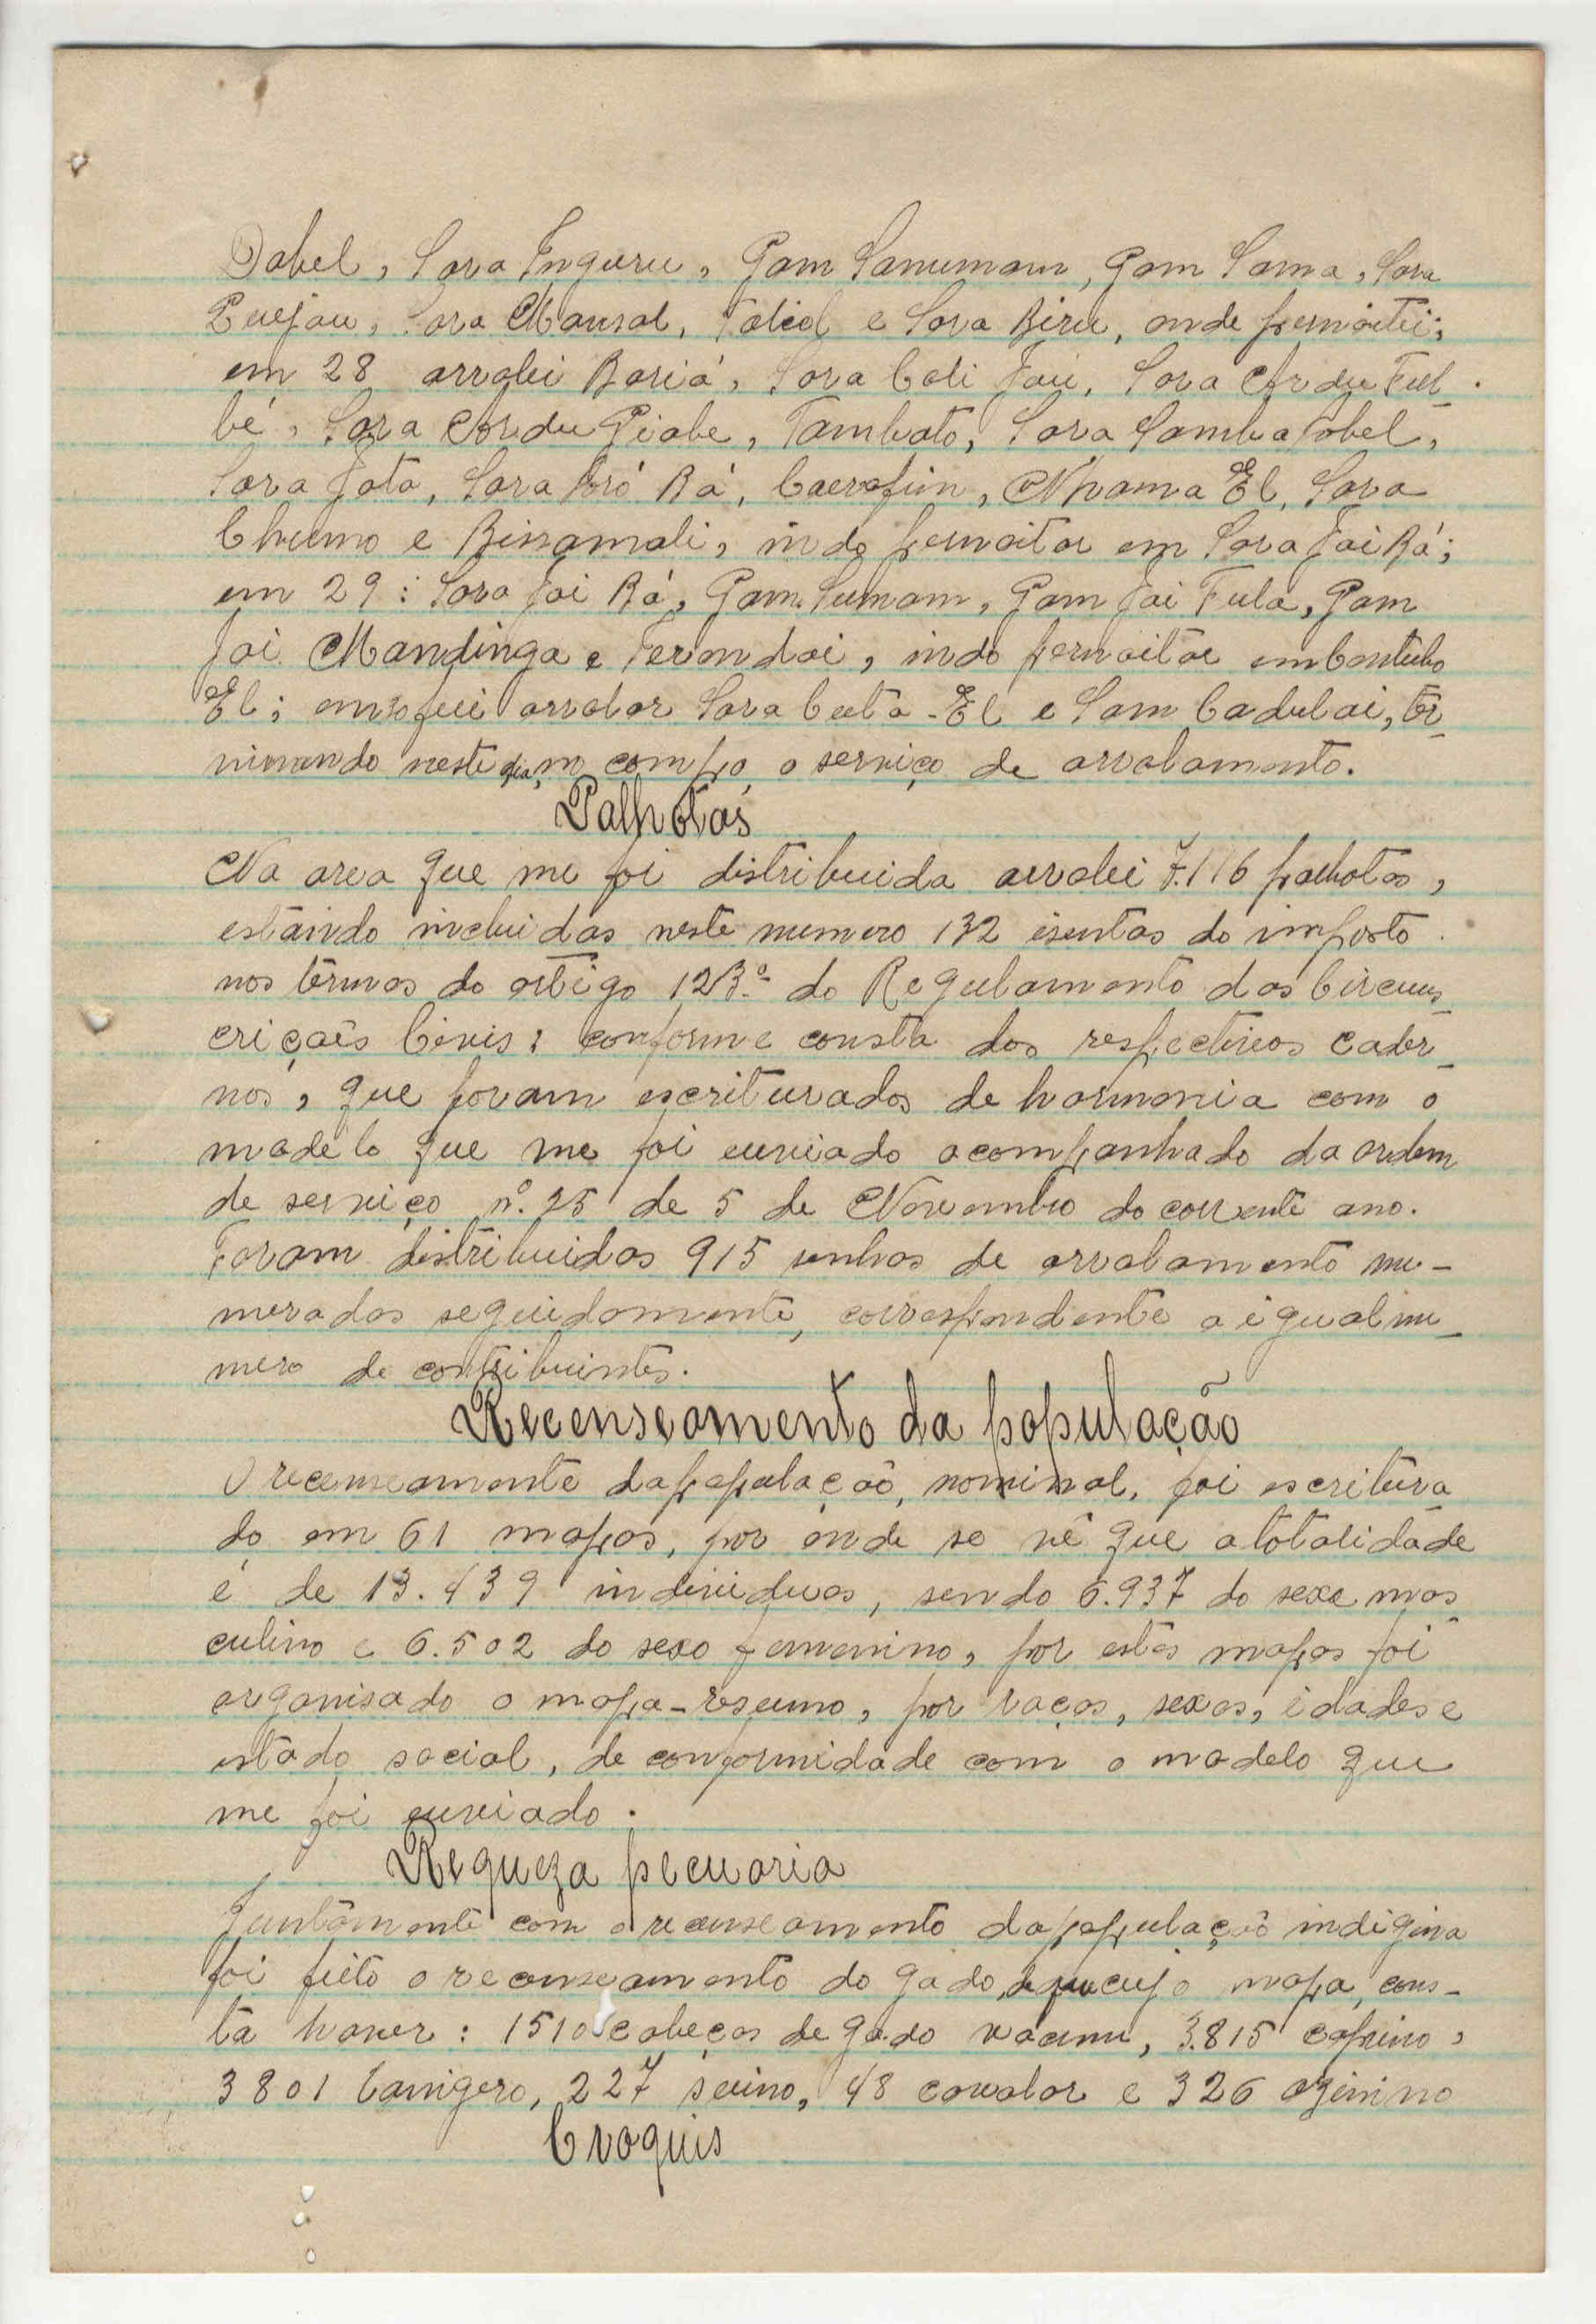 Dabel, Sara Inguru, Gam Sanumam, Gam Sama, Sara
Puejau, Sara Mansal, Talicol e Sara Biru, onde pernoitei;
em 28 arrolei Bariá, Sara Cali Jau, Sara Ardu Ful-
bé, Sara Ardu Piabe, Tambato, Sara Samba Jobel,
Sara Jata, Sara Boró Bá, Caerafim, Nhama El, Sara
Chumo e Bissamali, indo pernoitar em Sara Jai Bá;
em 29: Sara Jai Bá, Gam Sumam, Gam Jai Fula, Gam
Jai Mandinga e Ferandai, indo pernoitar em Contubo
El; em 30 fui arrolar Sara Cuta-El e Sam Cadulai, ter-
minando neste dia, no campo, o serviço de arrolamento.
Palhotas
Na area que me foi distribuida arrolei 7.116 palhotas,
estando incluidas neste numero 132 isentas do imposto
nos têrmos do artigo 123.º do Regulamento das Circuns-
criçaõs Civis: conforme consta dos respectivos cader-
nos, que foram escriturados de harmonia com o
modelo que me foi enviado acompanhado da ordem
de serviço nº. 25 de 5 de Novembro do corrente ano.
Foram distribuidas 915 senhas de arrolamento nu-
meradas seguidamente, correspondente a igual nu-
mero de contribuintes.
Recenseamento da população
O recenseamento da populaçaõ, nominal, foi escritura-
do em 61 mapas, por onde se vê que a totalidade
é de 13.439 individuos, sendo 6.937 do sexo mas-
culino e 6.502 do sexo femenino, por estes mapas foi
organisado o mapa-resumo, por raças, sexos, idades e
estado social, de conformidade com o modelo que
me foi enviado.
Requeza pecuaria
Juntamente com o recenseamento da populaçaõ indigina
foi feito o recenseamento do gado, de cujo mapa, cons-
ta haver: 1510 cabeças de gado vacum, 3.815 caprino,
3801 lanigero, 227 suino, 48 cavalar e 326 azinino
Croquis